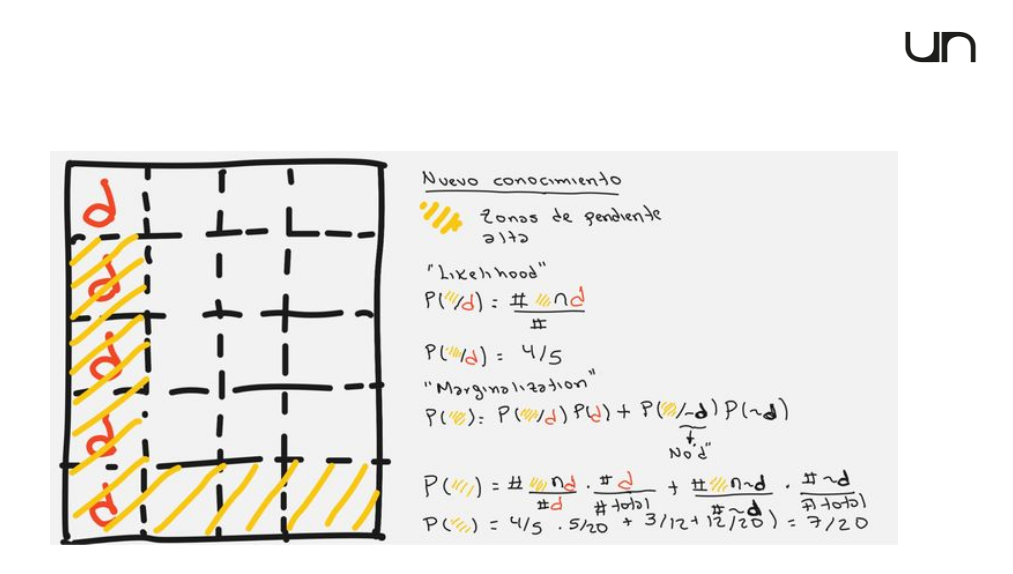 un
d
d
d
d
d
Nuevo conocimiento
Zonas de pendiente
alta
"Likelihood"
P(/d) = # ∩ d
#
P(/d) = 4/5
"Marginalization"
P() = P(/d) P(d) + P(/~d) P(~d)
No "d"
P() = # ∩ d / #d · # d / # total + # ∩ ~d / # ~d · # ~d / # total
P() = 4/5 · 5/20 + 3/12 + 12/20 ) = 7/20